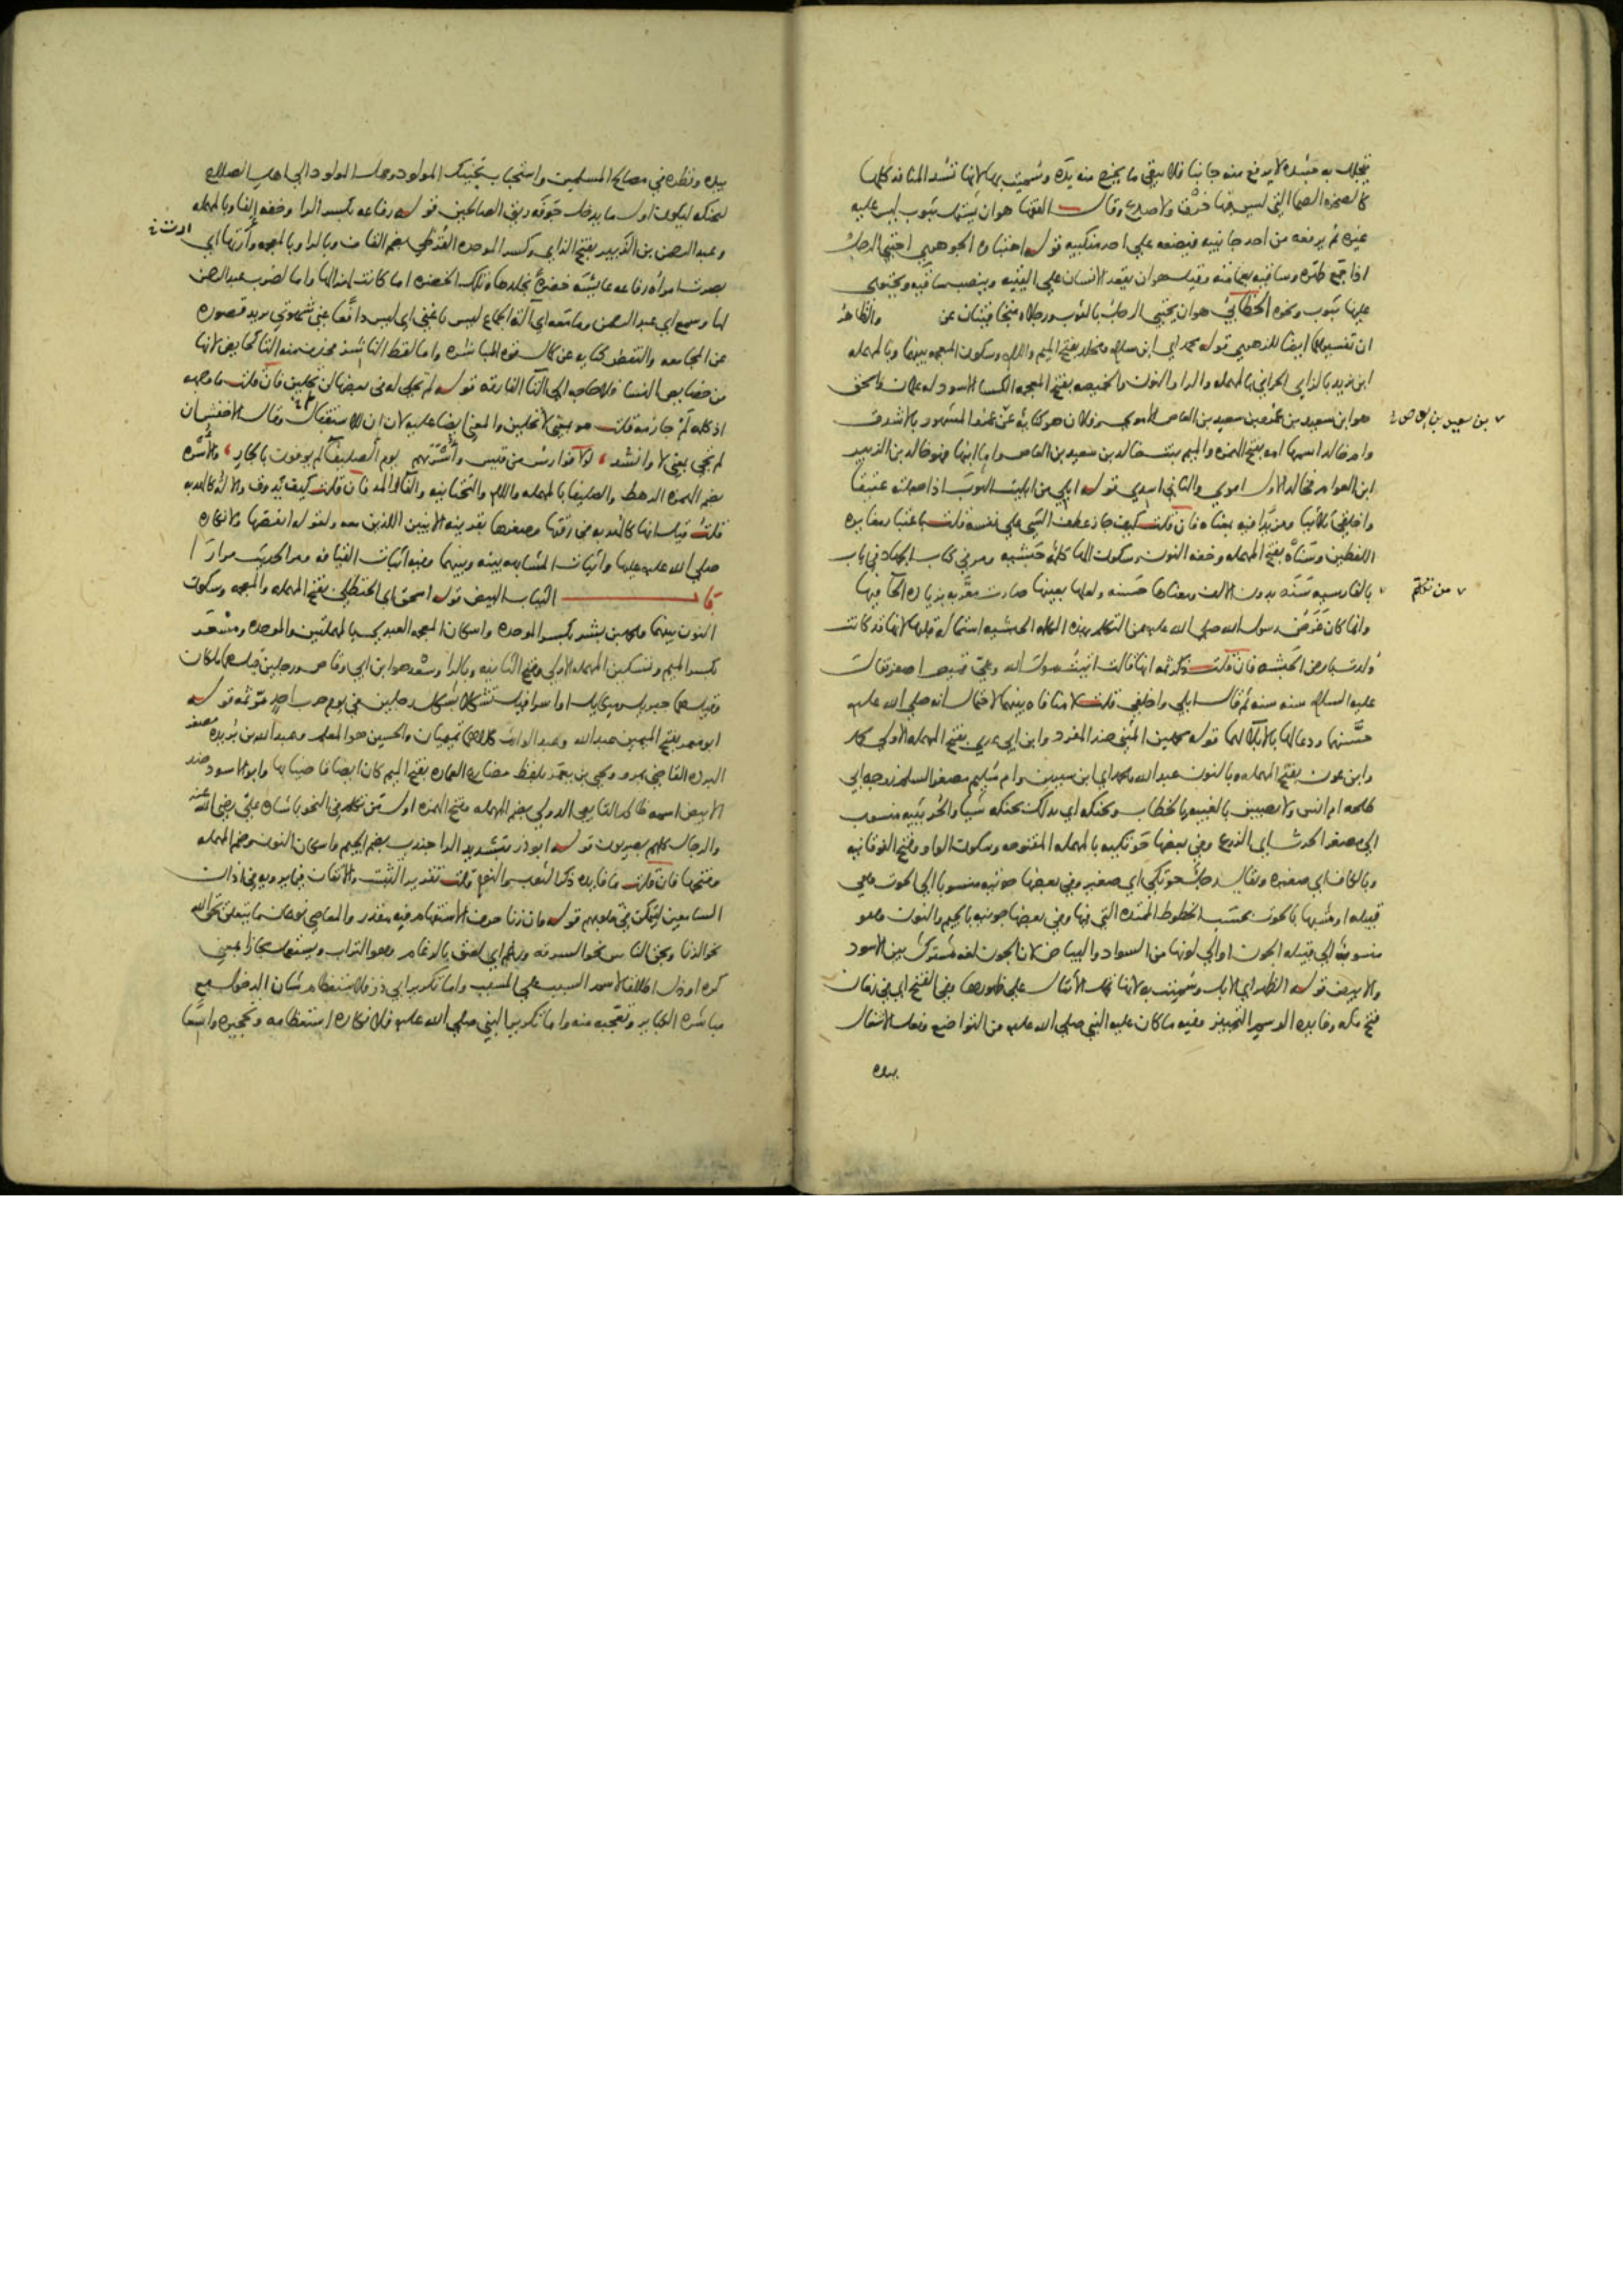 يتجلل به جسده لا يرفع منه جانبا فلا يبقى ما يخرج منه يده وسميت بها لانها تشد المنافذ كلها
كالصخرة الصما التي ليس فيها خرق ولا صدع وقال الفقها هو ان يشتمل بثوب ليس عليه
غيره ثم يرفعه من احد جانبيه فيضعه على احد منكبيه قوله احتباه الجوهري احتبى الرجل
اذا جمع ظهره وساقيه بعمامته وقيل هو ان يقعد الانسان على اليتيه وينصب ساقيه ويحتوي
عليها بثوب ونحوه الخطابي هو ان يحتبي الرجل بالثوب ورجلاه متجافيتان عن والظاهر
ان تفسيرها ايضا للزهري قوله محمد اي ابن سلام ومخلد بفتح الميم واللام وسكون المعجمه بينهما وبالمهمله
ابن يزيد بالزاي الحراني بالمهمله والرا والنون والخميصه بفتح المعجمه الكسا الاسود له علمان واسحق
هو ابن سعيد بن عمرو بن سعيد بن العاص الاموي وفلان هو كناية عن عمرو المشهور بالاشدق
بن سعيد بن العاص
وام خالد اسمها امه بفتح الهمزه والميم بنت خالد بن سعيد بن العاص واما ابنها فهو خالد بن الزبير
ابن العوام فخالد الاول اموي والثاني اسدي قوله ابلي من ابليت الثوب اذا جعلته عتيقا
واخلقي كلاهما ومن بدا فيه بمعناه فان قلت كيف جاز عطف الشي على نفسه قلت باعتبار مغايره
اللفظين وسناه بفتح المهمله وخفه النون وسكون الها كلمة حبشيه ومر في كتاب الجهاد في باب
من تكلم
بالفارسيه سنه بدون الالف ومعناها حسنه ولعلها بعينها صارت معربه بزياده الحا فيها
وانما كان غرض رسول الله صلى الله عليه من التكلم بهذه الكلمه الحبشيه استماله قلبها لانها قد كانت
ولدت بارض الحبشه فان قلت ذكر ثمه انها قالت اتيت رسول الله وعلي قميص اصفر فقال
عليه السلام سنه سنه ثم قال ابلي واخلقي قلت لا منافاه بينهما لاحتمال انه صلى الله عليه
حسنها ودعا لها بالابلا لهما قوله محمد بن المثنى ضد المفرد وابن ابي عدي بفتح المهمله الاولى محمد
وابن عون بفتح المهمله وبالنون عبد الله ومحمد اي ابن سيرين وام سليم مصغر السلم زوجه ابي
طلحه ام انس ولا يصيبن بالغيبه وبالخطاب ويحنكه اي يدلك بحنكه شيا والحريثيه منسوب
الى مصغر الحرث اي الزرع وفي بعضها حوتكيه بالمهمله المفتوحه وسكون الواو وفتح الفوقانيه
وبالكاف اي صغيره ويقال رجل حوتكي اي صغير وفي بعضها حوتيه منسوبا الى الحوت وهي
قبيله او شبهها بالحوت بحسب الخطوط الممتده التي فيها وفي بعضها جونيه بالجيم والنون وهو
منسوب الى قبيله الجون او الى لونها من السواد والبياض لان الجون لغه مشترك بين الاسود
والابيض قوله الظهر اي الابل وسميت به لانها تحمل الاثقال على ظهورها وفي الفتح اي في زمان
فتح مكه وفايده الوسم التمييز وفيه ما كان عليه النبي صلى الله عليه من التواضع وفعل الاشغال
بيده
بيده ونظره في مصالح المسلمين واستحباب تحنيك المولود وحمل المولود الى اهل الصلاح
ليحنكه ليكون اول ما يدخل جوفه ريق الصالحين قوله رفاعه بكسر الرا وخفه الفا وبالمهمله
وعبد الرحمن بن الزبير بفتح الزاي وكسر الموحده القرظي بضم القاف وبالرا وبالمعجمه وارتها اي
ارت
بصرت امراه رفاعه عايشه خضرة بجلدها وتلك الخضره اما كانت لهزالها واما لضرب عبد الرحمن
لها وسمع اي عبد الرحمن وما معه اي اله الجماع ليس باغنى اي ليس دافعا عني شهوتي يريد قصوره
عن المجامعه والنفض كنايه عن كمال قوه المباشره واما لفظ الناشز فحذف منه التا كحايض لانها
من خصايص النسا فلا حاجه الى التا الفارقه قوله لم تحلي له في بعضها لن تحلين فان قلت ما وجهه
اذ كله لم جازمه قلت هو بمعنى لا تحلين والمعنى ايضا عليه لان ان للاستقبال وقال الاخفش ان
لم تجي بمعنى لا وانشد لولا فوارس من قيس واسرتهم يوم الصليفا لم يوفون بالجار والاسره
بضم الهمزه الرهط والصليفا بالمهمله واللام والتحتانيه والفا والمد فان قلت كيف يذوق والاله كالهدبه
قلت قيل انها كالهدبه في رقتها وصغرها بقرينه الابنين اللذين معه ولقوله انفضها ولانكاره
صلى الله عليه عليها واثبات المشابهه بينه وبينهما وفيه اثبات القيافه ومر الحديث مرارا
باب الثياب البيض قوله اسحق اي الحنظلي بفتح المهمله والمعجمه وسكون
النون بينهما ومحمد بن بشر بكسر الموحده واسكان المعجمه العبدي بالمهملتين والموحده ومسعر
بكسر الميم وتسكين المهمله الاولى وفتح الثانيه وبالرا وسعد هو ابن ابي وقاص ورجلين قيل هما ملكان
وقيل هما جبريل وميكاييل او اسرافيل تشكلا بشكل رجلين في يوم حرب احد مر ثمه قوله
ابو معمر بفتح الميمين عبد الله وعبد الوارث كلاهما تميميان والحسين هو المعلم وعبد الله بن بريده مصغر
البرده القاضي بمرو ويحيى بن يعمر بلفظ مضارع العماره بفتح الميم كان ايضا قاضيا بها وابو الاسود ضد
الابيض اسمه ظالم التابعي الدولي بضم المهمله وفتح الهمزه اول من تكلم في النحو باشاره علي رضي الله عنه
والرجال كلهم بصريون قوله ابو ذر بتشديد الرا جندب بضم الجيم واسكان النون وضم المهمله
وفتحها فان قلت ما فايده ذكر الثوب والنوم قلت تقرير التثبت والاتقان فيما يرويه في اذان
السامعين ليتمكن في قلوبهم قوله وان زنا حرف الاستفهام فيه مقدر والمعاصي نوعان ما يتعلق بحق الله
نحو الزنا وبحق الناس نحو السرقه ورغم اي لصق بالرغام وهو التراب ويستعمل مجازا بمعنى
كره او ذل اطلاقا لاسم السبب على المسبب واما تكرير ابي ذر فلاستعظام شان الدخول مع
مباشره الكباير وتعجبه منه واما تكرير النبي صلى الله عليه فلانكاره استعظامه وتحجيره واسعا